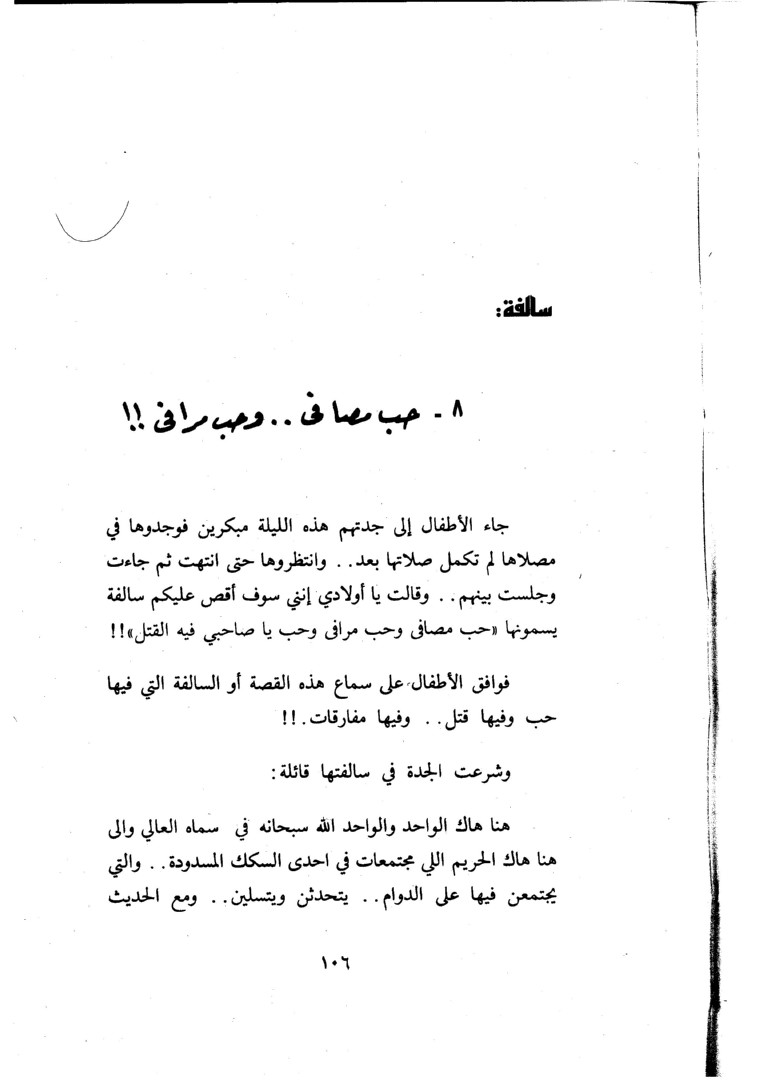 سالفة:
٨ - حب مصافى . . وحب مرافى !!
جاء الأطفال إلى جدتهم هذه الليلة مبكرين فوجدوها في
مصلاها لم تكمل صلاتها بعد. . وانتظروها حتى انتهت ثم جاءت
وجلست بينهم. . وقالت يا أولادي إنني سوف أقص عليكم سالفة
يسمونها «حب مصافى وحب مرافى وحب يا صاحبي فيه القتل»!!
فوافق الأطفال على سماع هذه القصة أو السالفة التي فيها
حب وفيها قتل. . وفيها مفارقات.!!
وشرعت الجدة في سالفتها قائلة:
هنا هاك الواحد والواحد الله سبحانه في سماه العالي والى
هنا هاك الحريم اللي مجتمعات في احدى السكك المسدودة. . والتي
يجتمعن فيها على الدوام. . يتحدثن ويتسلين. . ومع الحديث
١٠٦